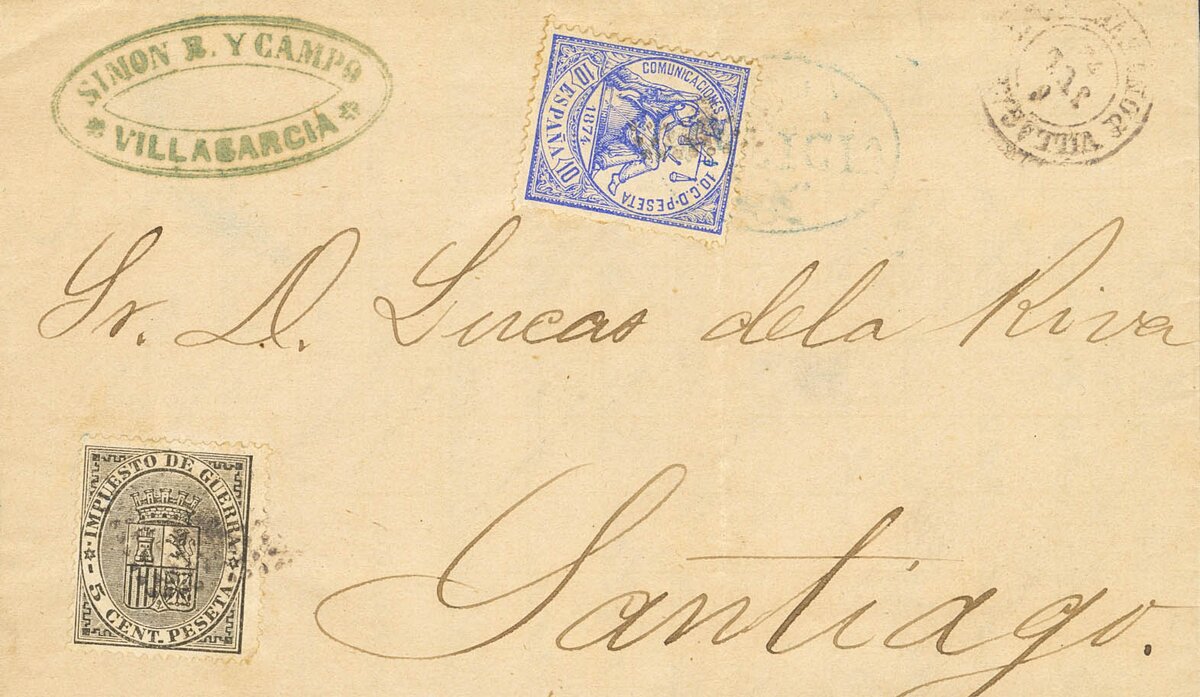 SIMON R. Y CAMPO
VILLAGARCIA
COMUNICACIONES
10 ESPAÑA 10
1874
10 C. D. PESETA
Sr. D. Lucas dela Riva
IMPUESTO DE GUERRA
5 CENT. PESETA
Santiago.